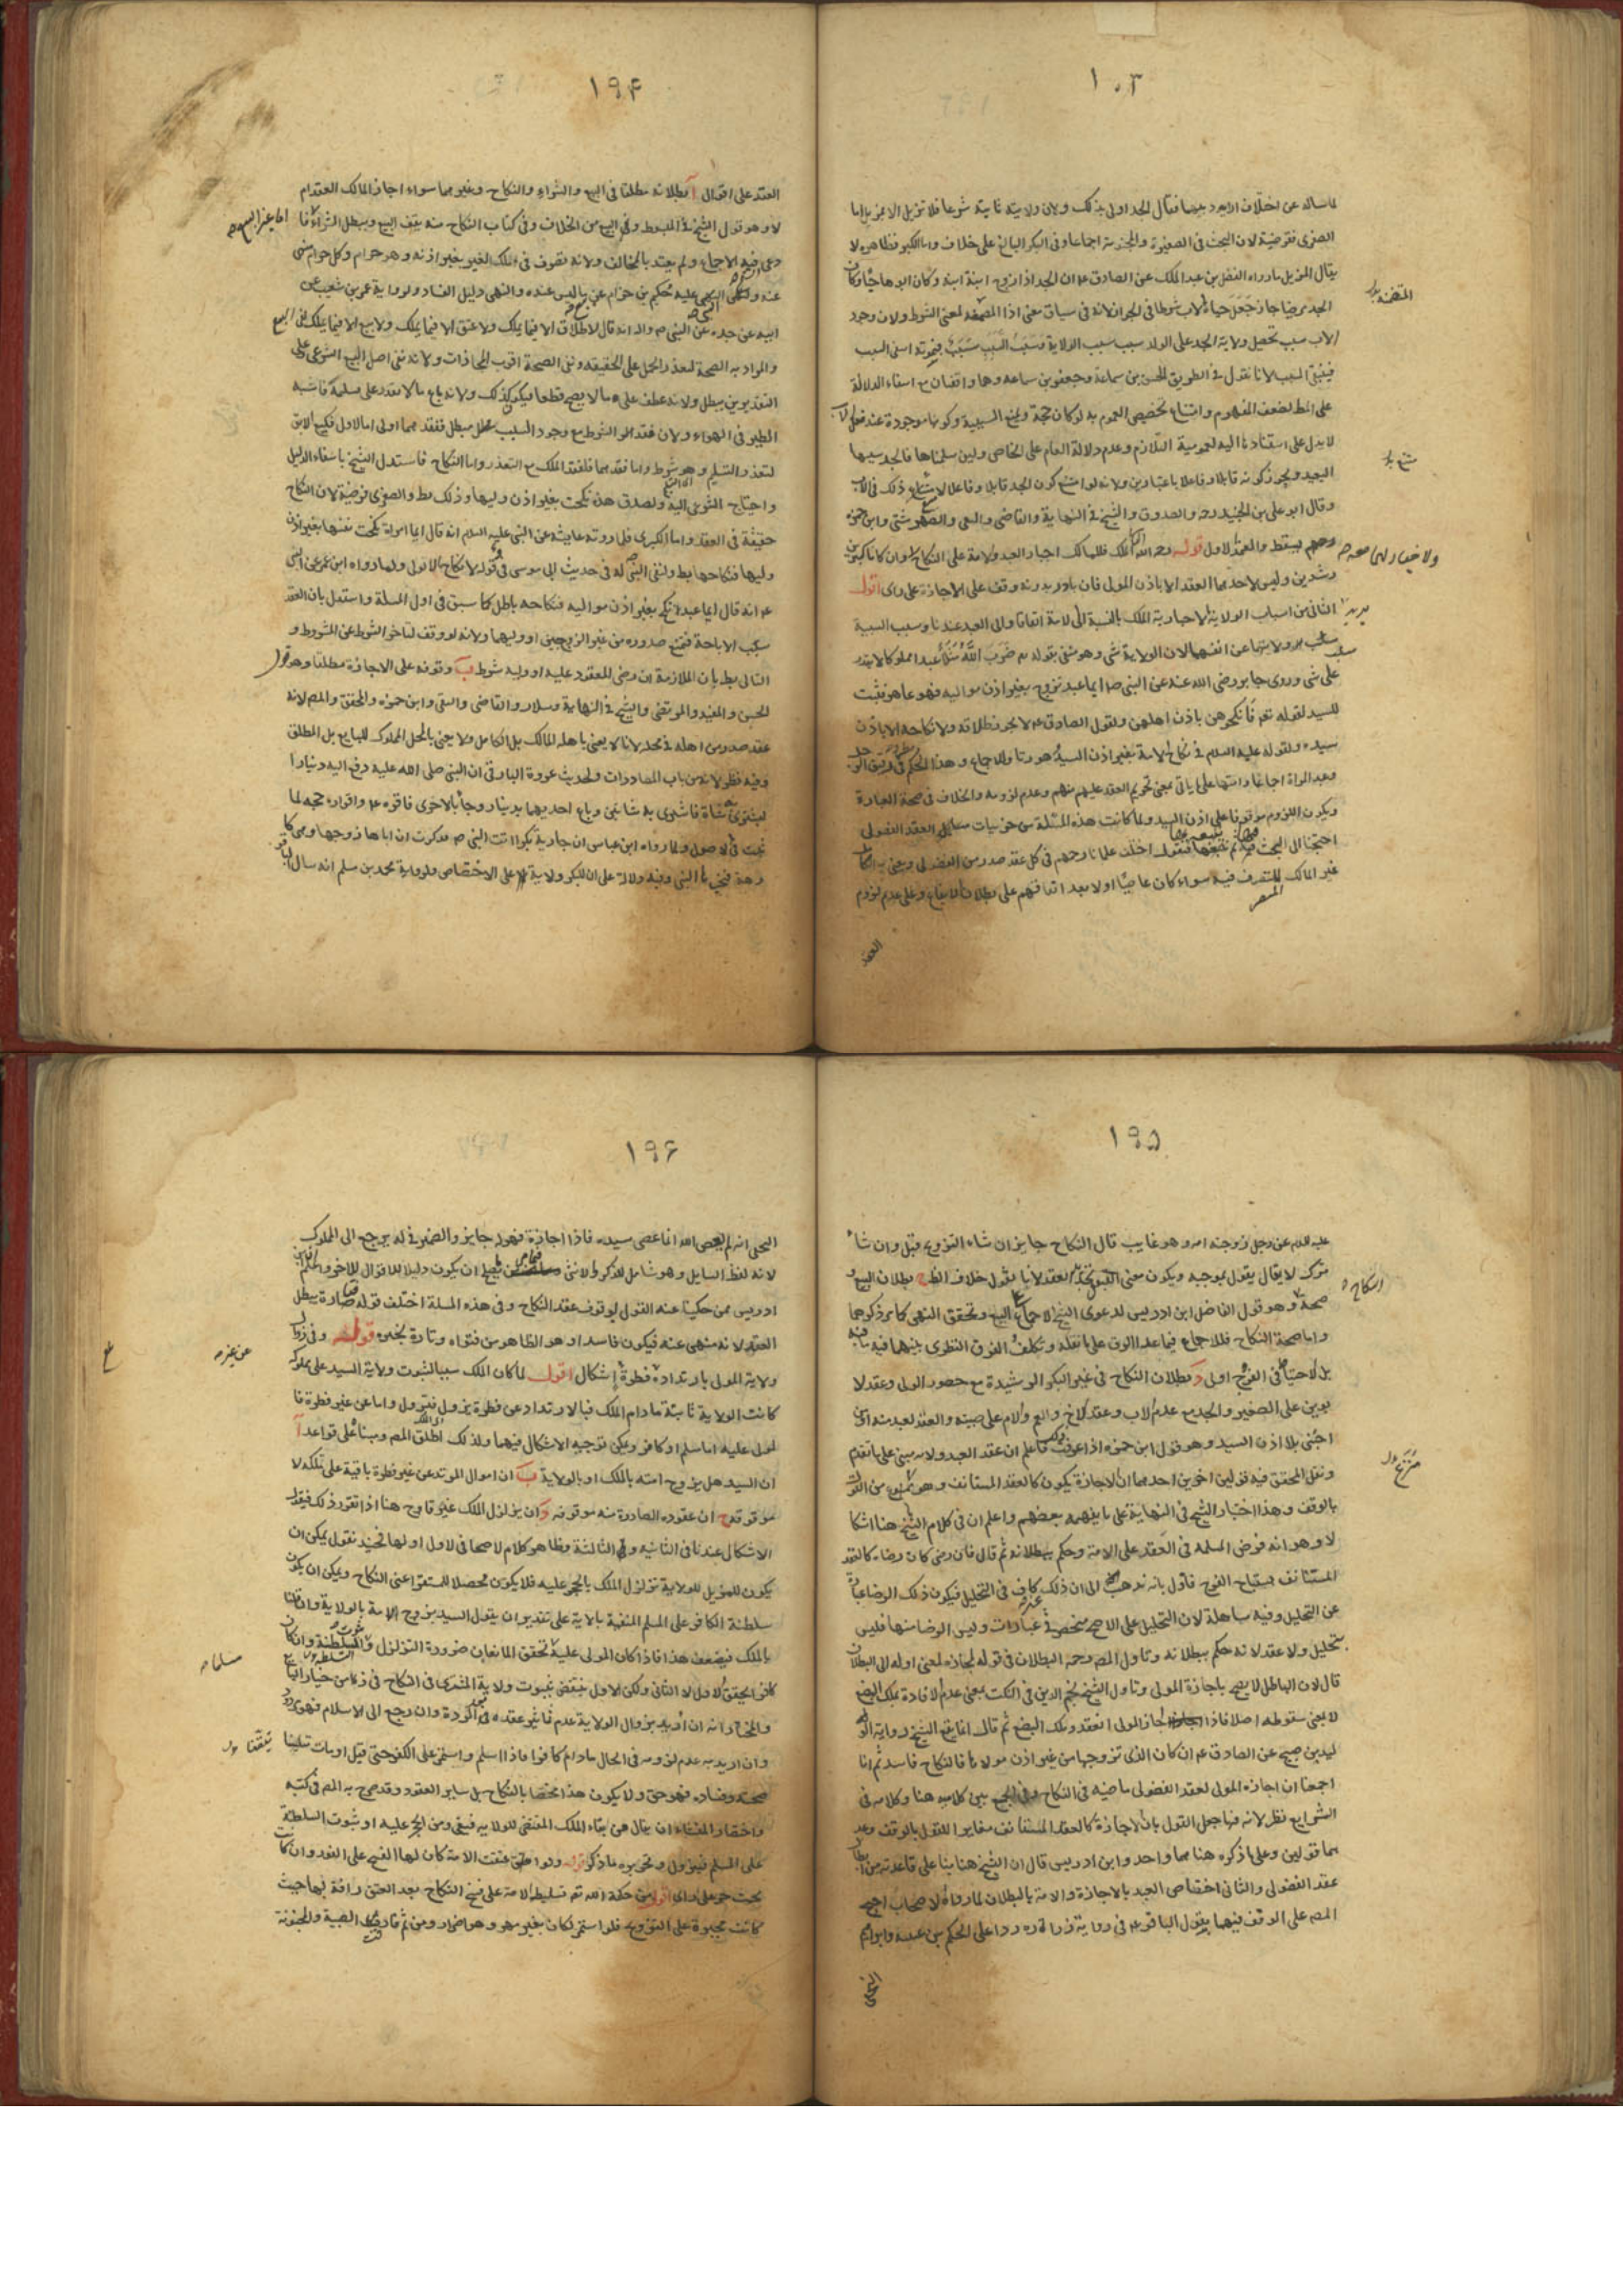 ١٠٣
لما ساله عن اختلاف الاب وجد بيها فقال الجد اولى بذلك ولان ولايته ثابتة شرعا فلا تزيل الا بمزيل اما
الصغرى فرضية لان البحث في الصغيرة والمجنونة اجماعا وفي البكر البالغ على خلاف واما الكبرى فظاهرة لا
يقال المزيل ما رواه الفضل بن عبد الملك عن الصادق ع ان الجد اذا زوج ابنة ابنه وكان ابوها حيا وكان
الجد مرضيا جاز جعل حياة الاب شرطا في الجواز لانه في سياق معنى اذا المتضمنة لمعنى الشرط ولان وجود
الاب سبب تحصيل ولاية الجد على الولد سبب الولاية وسبب السبب سبب
فينتفي السبب لانا نقول في الطريق الحسن بن سماعة وجعفر بن سماعه وهما واقفيان مع انتفاء الدلالة
على الشرط لضعف المفهوم وامتناع تخصيص العموم به لو كان حجة ونمنع السببية وكونها موجودة عند
لا يدل على استنادها اليه لعمومية التلازم وعدم دلالة العام على الخاص ولئن سلمناها فالجد سببها
البعيد ويجوز كونه قابلا وفاعلا باعتبارين ولانه لو امتنع كون الجد قابلا وفاعلا لامتنع ذلك في الاب
وقال ابو علي بن الجنيد رحه والصدوق والشيخ في النهاية والقاضي والتقي والصهرشتي وابن حمزه
رحهم يسقط والمعتمد الاول قوله رحمه الله الملك فللمالك اجبار العبد والامة على النكاح وان كانا كبيرين
رشيدين وليس لاحدهما العقد الا باذن المولى فان بادر بدونه وقف على الاجازة على راى اقول
الثاني من اسباب الولاية الاجبارية الملك بالنسبة الى الامة اتفاقا والى العبد عندنا وسبب السببية
سلب ولايتها عن انفسهما لان الولاية شي وهو منفي بقوله تع ضرب الله مثلا عبدا مملوكا لا يقدر
على شي وروى جابر رضى الله عنه عن النبي ص ايما عبد تزوج بغير اذن مواليه فهو عاهر فثبت
للسيد لقوله تع فانكحوهن باذن اهلهن ولقول الصادق ع لا يجوز طلاقه ولا نكاحه الا باذن
سيده ولقوله عليه السلام في نكاح الامة بغير اذن السيد هو زنا وللاجماع وهذا الحكم
وعبد المراة اجماعا وانتها على ما ياتى بمعنى تحريم العقد عليهم منهم وعدم لزومه والخلاف في صحة العبارة
ويكون اللزوم موقوفا على اذن السيد ولما كانت هذه المسئلة من جزئيات مسايل العقد الفضولى
احتجنا الى البحث فيها ثم نتبعها فنقول اختلف علمائنا رحهم في كل عقد صدر من الفضولى ويعنى به الكامل
غير المالك للتصرف فيه سواء كان غاصبا اولا بعد اتفاقهم على بطلان الايقاع وعلى عدم لزوم
العقد
المتضمنة
منع
ولا خيار لهما صح
١٩۴
العقد على اقوال آ بطلانه مطلقا في البيع والشراء والنكاح وغيرهما سواء اجاز المالك العقد ام
لا وهو قول الشيخ في المبسوط وفي البيع من الخلاف وفي كتاب النكاح منه يقف البيع ويبطل الشراء
دعى فيه الاجماع ولم يعتد بالمخالف ولانه تصرف في ملك الغير بغير اذنه وهو حرام وكل حرام منهى
عنه ولنهى النبي عليه حكيم بن حزام عن بيع ما ليس عنده والنهى دليل الفساد ولرواية عمرو بن شعيب عن
ابيه عن جده عن النبي ص واله انه قال لا طلاق الا فيما يملك ولا عتق الا فيما يملك ولا بيع الا فيما يملك
والمراد به الصحة لتعذر الحمل على الحقيقة ونفى الصحة اقرب المجازات ولانه نفى اصل البيع الشرعى وعلى
التقديرين يبطل ولانه عطف على ما لا يصح قطعا فيكون كذلك ولانه باع ما لا يقدر على تسليمه فاشبه
الطير في الهواء ولان فقد الشرط مع وجود السبب مبطل ففقدهما اولى اما الاول فكبيع الابق
لتعذر التسليم وهو شرط واما فقدهما فلفقد الملك مع التعذر واما النكاح فاستدل الشيخ بانتفاء الدليل
واحتياج الشرعى اليه ولصدق هذه نكحت بغير اذن وليها وذلك بط والصغرى فرضية لان النكاح
حقيقة في العقد واما الكبرى فلما روته عايشه عن النبي عليه السلام انه قال ايما امراة نكحت نفسها بغير اذن
وليها فنكاحها بط ولنفى النبي له في حديث ابى موسى في قوله لا نكاح الا بولى ولما رواه ابن عمر عن النبي
ع انه قال ايما عبد نكح بغير اذن مواليه فنكاحه باطل كما سبق في اول المسلة واستدل بان العقد
سبب الاباحة فيمتنع صدوره من غير الزوجين او وليهما ولانه لو وقف لتاخر الشرط عن المشروط و
التالى بط بان الملازمة ان رضى المعقود عليه او وليه شرط ب وقوفه على الاجازة مطلقا وهو قول
الحسن والمفيد والمرتضى والشيخ في النهاية وسلار والقاضى والتقى وابن حمزه والمحقق والمص لانه
عقد صدر من اهله في محله لانا لا يعنى باهله المالك بل الكامل ولا يعنى بالمحل المملوك للبايع بل المطلق
وفيه نظر لانه من باب المصادرات ولحديث عروة البارقى ان النبي صلى الله عليه دفع اليه دينارا
ليشترى شاة فاشترى به شاتين وباع احديهما بدينار وجاء بالاخرى فاقره ع واقراره حجه لما
ثبت في الاصول ولما رواه ابن عباس ان جارية بكرا اتت النبي ص فذكرت ان اباها زوجها وهى كا
رهة فخيرها النبي وفيه دلالة على ان للبكر ولاية على الاختصاص ولرواية محمد بن مسلم انه سال الباقر
اما غير البيع
١٩۵
عليه السلم عن رجل زوجته امه وهو غايب قال النكاح جايز ان شاء التزويج قبل وان شاء
ترك لا يقال يقول بموجبه ويكون معنى القبول تجديد العقد لانا نقول خلاف الظاهر ج بطلان البيع و
صحة وهو قول الفاضل ابن ادريس لدعوى الشيخ الاجماع وتحقق النهى كما مر ذكرهما
واما صحة النكاح فللاجماع فيما عدا على ما نقله وتكلف الفرق النظرى بينهما فيه
بل لاحتياط في الفروج اولى د بطلان النكاح في غير البكر الرشيدة مع حضور الولى وعقد لا
بوين على الصغير والجد مع عدم الاب وعقد الاخ والعم والام على صبيه والعقد لعبد منه اذن
اجنبى بلا اذن السيد وهو قول ابن حمزه اذا عرفت فاعلم ان عقد العبد ولامه مبنى على ما تقدم
ونقل المحقق فيه قولين اخرين احدهما ان الاجازة يكون كالعقد المستانف وهو ممنوع من القول
بالوقف وهذا اختيار الشيخ في النهاية على ما يفهمه بعضهم واعلم ان في كلام الشيخ هنا اشكا
لا وهو انه فرض المسلة في العقد على الامة وحكم ببطلانه ثم قال فان رضى كان رضاه كالعقد
المستانف يستباح الفرج فاول بانه ذهب الى ان ذلك كاف في التحليل فيكون ذلك الرضا عبارة
عن التحليل وفيه مساهلة لان التحليل على الاصح منحصر في عبارات وليس الرضا منها فليس
بتحليل ولا عقد لانه حكم ببطلانه وتاول المص رحمه البطلان في قوله لمجازه لمعنى اوله الى البطلان
قال لان الباطل لا يصح باجازة المولى وتاول الشيخ نجم الدين في النكت بمعنى عدم الافادة بملك البضع
لا بمعنى سقوطه اصلا فاذا اجاز المولى انعقد وملك البضع ثم قال انما يقع الشيخ رواية الو
ليد بن صبيح عن الصادق ع ان كان الذى تزوجها من غير اذن مولاها فالنكاح فاسد ثم انا
اجمعنا ان اجازة المولى لعقد الفضولى ماضيه في النكاح وفي الجمع بين كلاميه هنا وكلامه في
الشرايع نظر لانه فيها جعل القول بان الاجازة كالعقد المستانف مغايرا للقول بالوقف وعد
هما قولين وعلى ما ذكره هنا هما واحد وابن ادريس قال ان الشيخ هنا بنا على قاعدته من
عقد الفضولى والثانى اختصاص العبد بالاجازة والامة بالبطلان لما رواه الاصحاب احتج
المص على الوقف فيهما بقول الباقر ع في رواية زرارة ردا على الحكم بن عتيبه وابراهيم
النخعى
النكاح
١٩۶
النخعى انه لم يعص الله انما عصى سيده فاذا اجازه فهو له جايز والضمير في له يرجع الى المملوك
لانه لفظ السايل وهو شامل للذكر والانثى ان يكون دليلا للاقوال الاخر واعلم ان ابن
ادريس ممن حكينا عنه القول بوقوف عقد النكاح وفي هذه المسلة اختلف قوله فتارة يبطل
العقد لانه منهى عنه فيكون فاسدا وهو الظاهر من فتواه وتارة يخيره قوله وفي زوال
ولاية المولى بارتداده فطرة اشكال اقول لما كان الملك سببا لثبوت ولاية السيد على مملوكه
كانت الولاية ثابتة مادام الملك فبالارتداد عن فطرة يزول فتزول واما عن غير فطرة فا
لمولى عليه اما مسلم او كافر ويمكن توجيه الاشكال فيهما ولذلك اطلق المص ومبناه على قواعد آ
ان السيد هل يزوج امته بالملك او بالولاية ب ان اموال المرتد عن غير فطرة باقية على ملكه لا
موقوفه ج ان عقوده الصادرة منه موقوفه د ان يزلزل الملك غير قادح هنا اذا تقرر ذلك فنقول
الاشكال عندنا في الثانيه وفي الثالثة وظاهر كلام الاصحاب في الاول اولها فحينئذ نقول يمكن ان
يكون المزيل للولاية تزلزل الملك بالحجر عليه فلا يكون محصلا للمستقرا عنى النكاح ويمكن ان يكون
سلطنة الكافر على المسلم المنفية بالاية على تقدير ان يقول السيد يزوج الامة بالولاية وان قلنا
بالملك فيضعف هذا فاذا كان المولى عليه تحقق المانعان ضرورة التزلزل والسلطنة وان كان
كافرا تحقق الاول لا الثانى ولكن الاول ينتقض بثبوت ولاية المشترى في النكاح في زمان خيار البايع
والتحقيق انه ان اريد بزوال الولاية عدم تاثير عقده في الردة وان رجع الى الاسلام فهو مردود
وان اريد به عدم لزومه في الحال مادام كافرا فاذا اسلم واستمر على الكفر حتى قتل او مات تبينا
صحته وفساده فهو حق ولا يكون هذا مختصا بالنكاح بل ساير العقود وقد صرح به المص في كتبه
واختصار المنشاء ان يقال من بقاء الملك المقتضى للولاية فيبقى ومن الحجر عليه او ثبوت السلطنة
على المسلم فيزول وتحريره ما ذكر قوله ولو اعتقت الامة كان لها الفسخ على الفور وان كانت
تحت حر على راى اقول من حكمة الله تع تسليطه الامة على فسخ النكاح بعد العتق رافة بها حيث
كانت مجبورة على التزويج فلو استمر لكان بغير مهر وهو اضرار ومن ثم الصبية والمجنونة